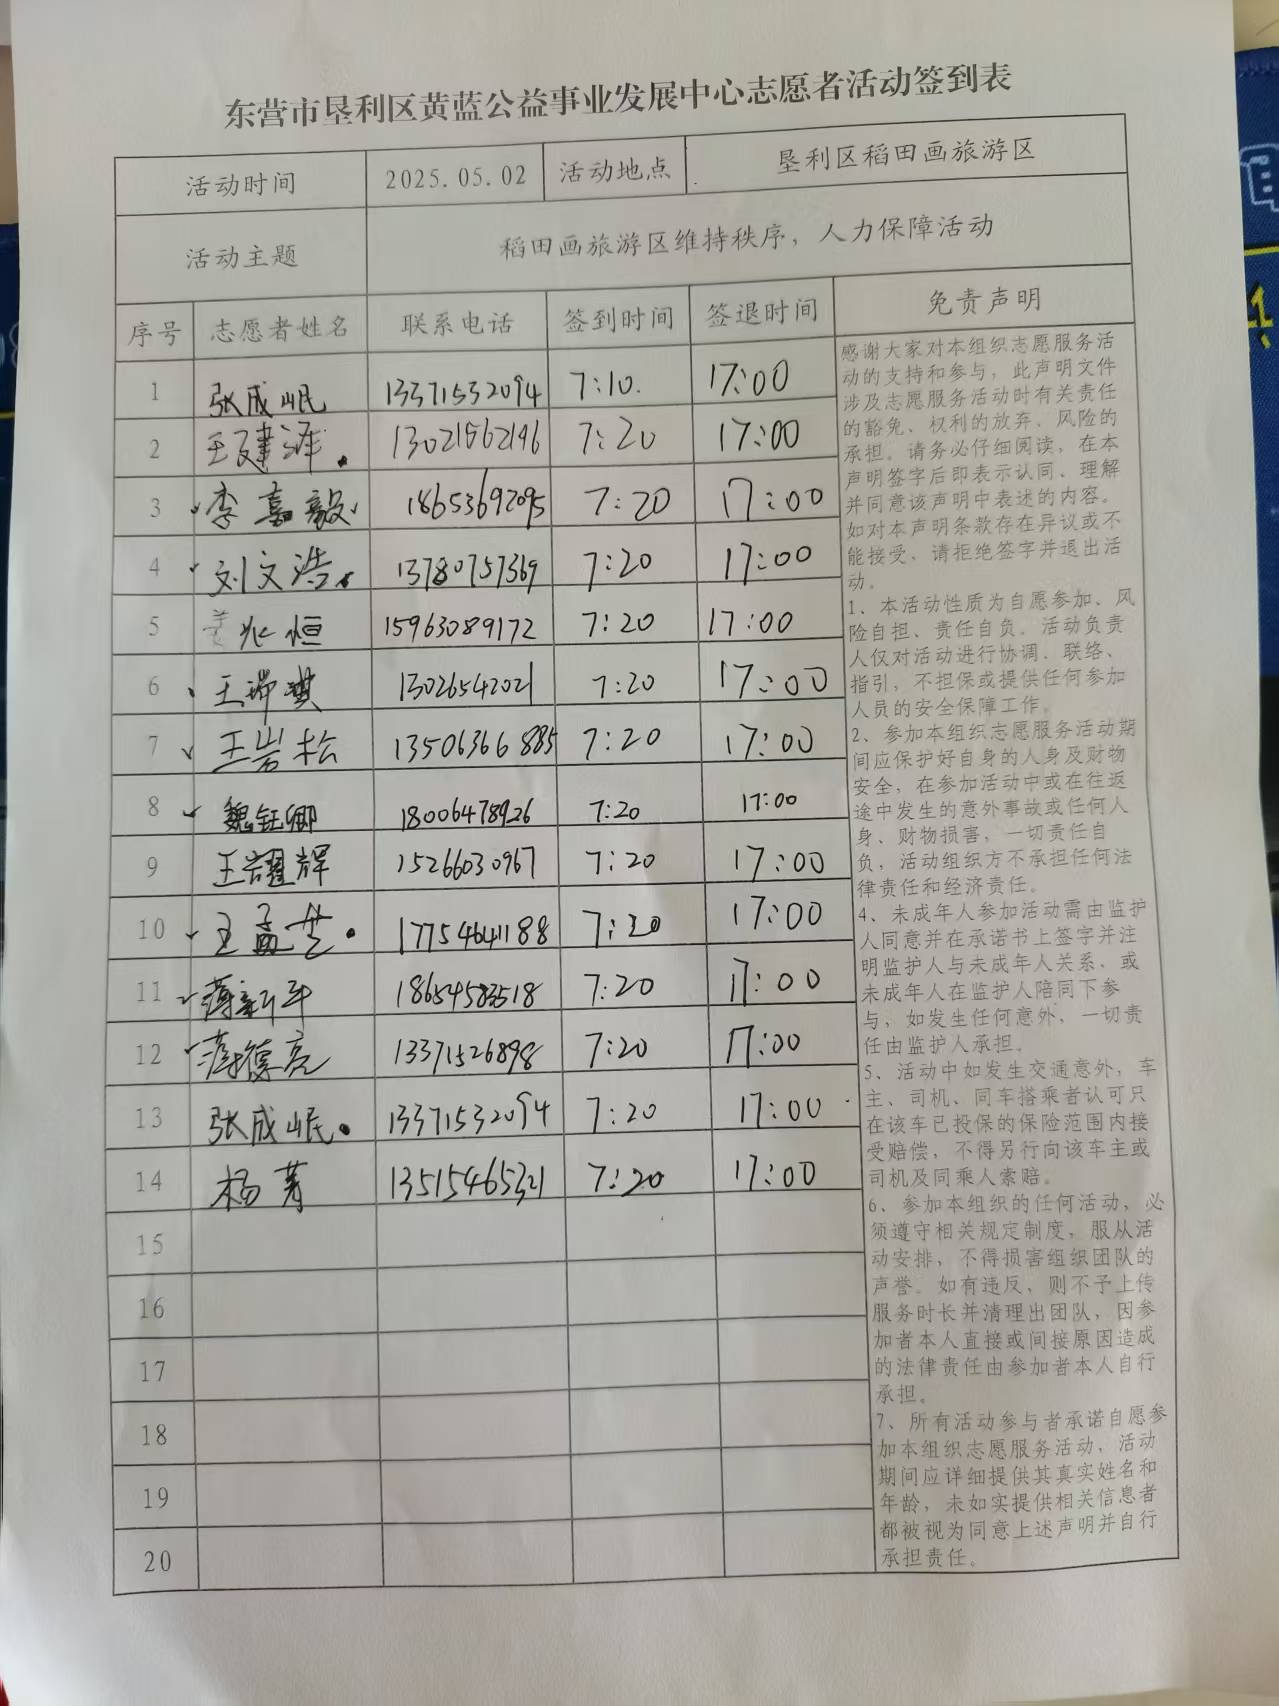 东营市垦利区黄蓝公益事业发展中心志愿者活动签到表
活动时间 2025.05.02 活动地点 垦利区稻田画旅游区
活动主题 稻田画旅游区维持秩序，人力保障活动
序号 志愿者姓名 联系电话 签到时间 签退时间 免责声明
1 张成岷 13371532094 7:10. 17:00
2 王建 13021562196 7:20 17:00
3 李嘉毅 18653692095 7:20 17:00
4 刘文浩 13780757369 7:20 17:00
5 姜兆恒 15963089172 7:20 17:00
6 王瑞琪 13026542021 7:20 17:00
7 王岩松 13506366885 7:20 17:00
8 魏钰卿 18006478926 7:20 17:00
9 王耀辉 15266030967 7:20 17:00
10 王孟芝 17754641188 7:20 17:00
11 薄新平 18654583518 7:20 17:00
12 薄德亮 13371526898 7:20 17:00
13 张成岷 13371532094 7:20 17:00
14 杨菁 13515465321 7:20 17:00
15
16
17
18
19
20
感谢大家对本组织志愿服务活
动的支持和参与，此声明文件
涉及志愿服务活动时有关责任
的豁免、权利的放弃、风险的
承担。请务必仔细阅读，在本
声明签字后即表示认同、理解
并同意该声明中表述的内容。
如对本声明条款存在异议或不
能接受，请拒绝签字并退出活
动。
1、本活动性质为自愿参加、风
险自担、责任自负。活动负责
人仅对活动进行协调、联络、
指引，不担保或提供任何参加
人员的安全保障工作。
2、参加本组织志愿服务活动期
间应保护好自身的人身及财物
安全，在参加活动中或在往返
途中发生的意外事故或任何人
身、财物损害，一切责任自
负，活动组织方不承担任何法
律责任和经济责任。
4、未成年人参加活动需由监护
人同意并在承诺书上签字并注
明监护人与未成年人关系，或
未成年人在监护人陪同下参
与，如发生任何意外，一切责
任由监护人承担。
5、活动中如发生交通意外，车
主、司机、同车搭乘者认可只
在该车已投保的保险范围内接
受赔偿，不得另行向该车主或
司机及同乘人索赔。
6、参加本组织的任何活动，必
须遵守相关规定制度，服从活
动安排，不得损害组织团队的
声誉。如有违反，则不予上传
服务时长并清理出团队，因参
加者本人直接或间接原因造成
的法律责任由参加者本人自行
承担。
7、所有活动参与者承诺自愿参
加本组织志愿服务活动，活动
期间应详细提供其真实姓名和
年龄，未如实提供相关信息者
都被视为同意上述声明并自行
承担责任。